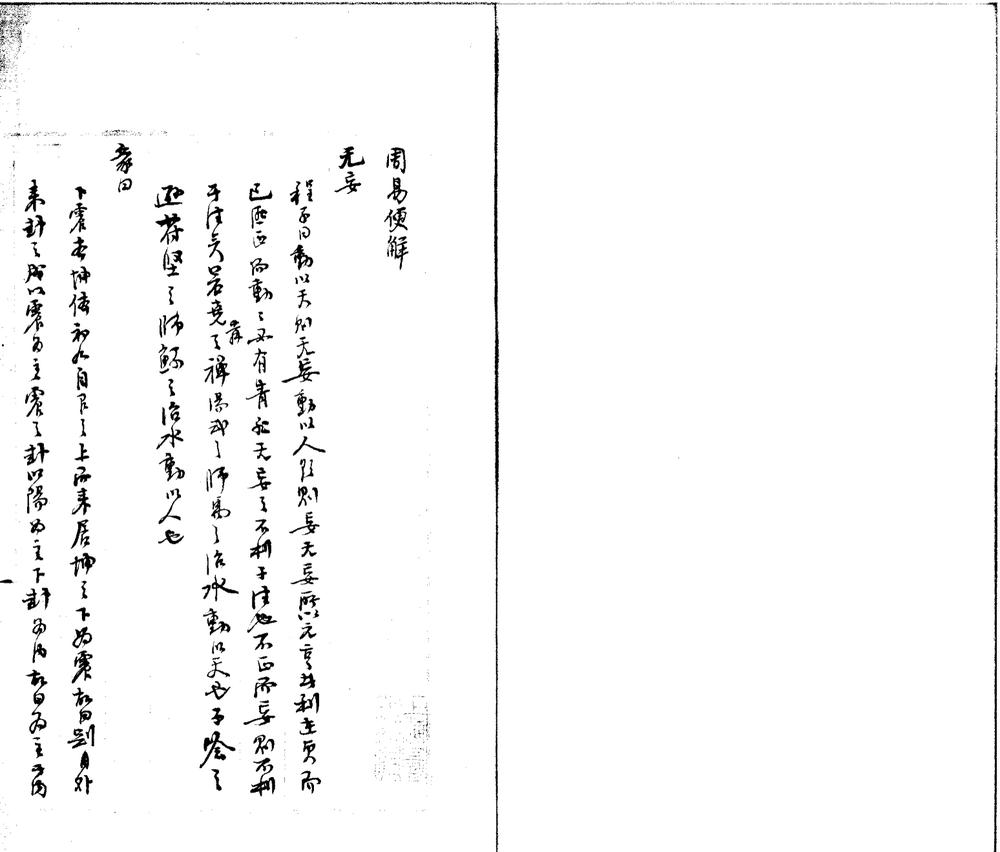 周易便解
无妄
程子曰動以天則无妄動以人欲則妄无妄所以元亨其利在貞而
已匪正而動動必有眚此无妄之不利于往也不正而妄則不利
于往矣若堯舜之禪湯武之師禹之治水動以天也子噲之
遜苻堅之師鯀之治水動以人也
彖曰
下震本坤體初九自乾之上而來居坤之下為震故曰剛自外
來卦之所以震為主震之卦以陽為主下卦為內故曰為主於內